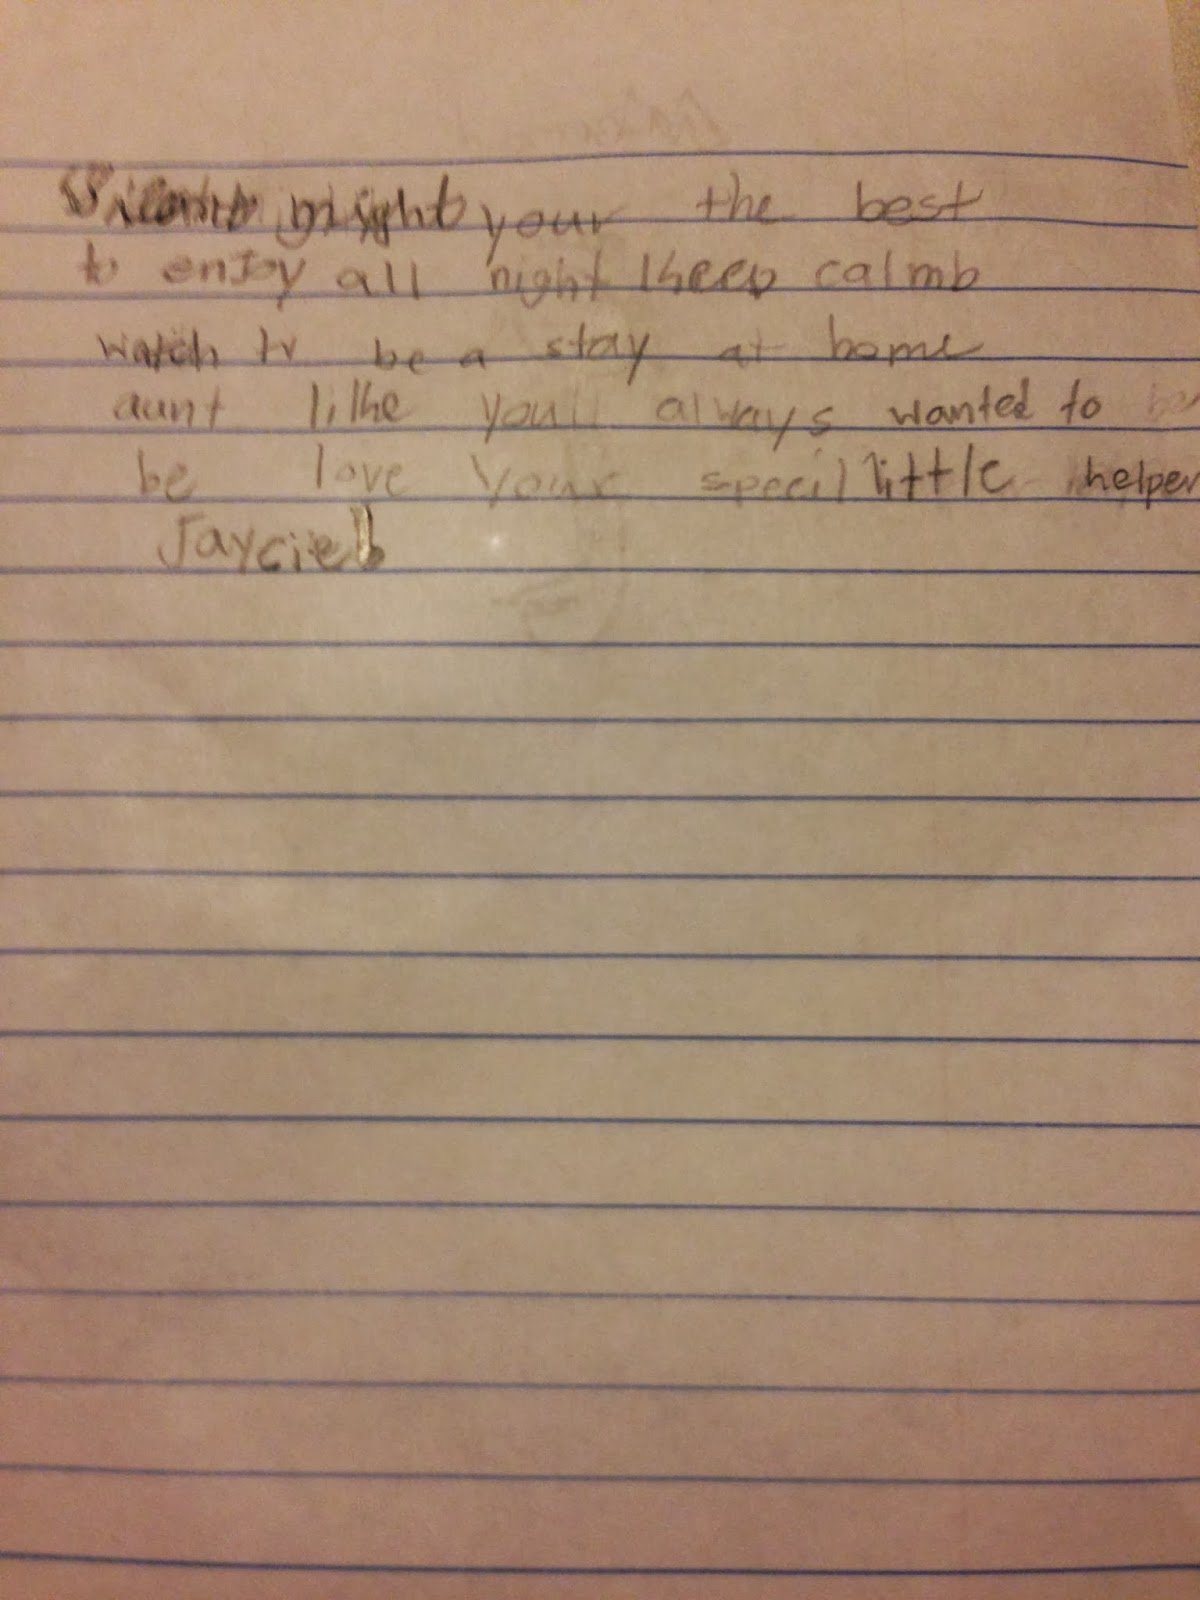 Silent night your the best
to enjoy all night keep calmb
watch tv be a stay at home
aunt like youll always wanted to be
be love your specil little helper
Jaycie